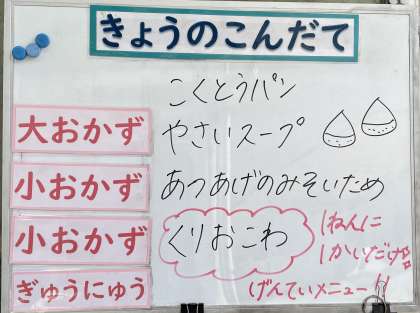 きょうのこんだて
こくとうパン
大おかず
やさいスープ
小おかず
あつあげのみそいため
小おかず
くりおこわ
1ねんに
1かいだけ
ぎゅうにゅう
げんていメニュー!!